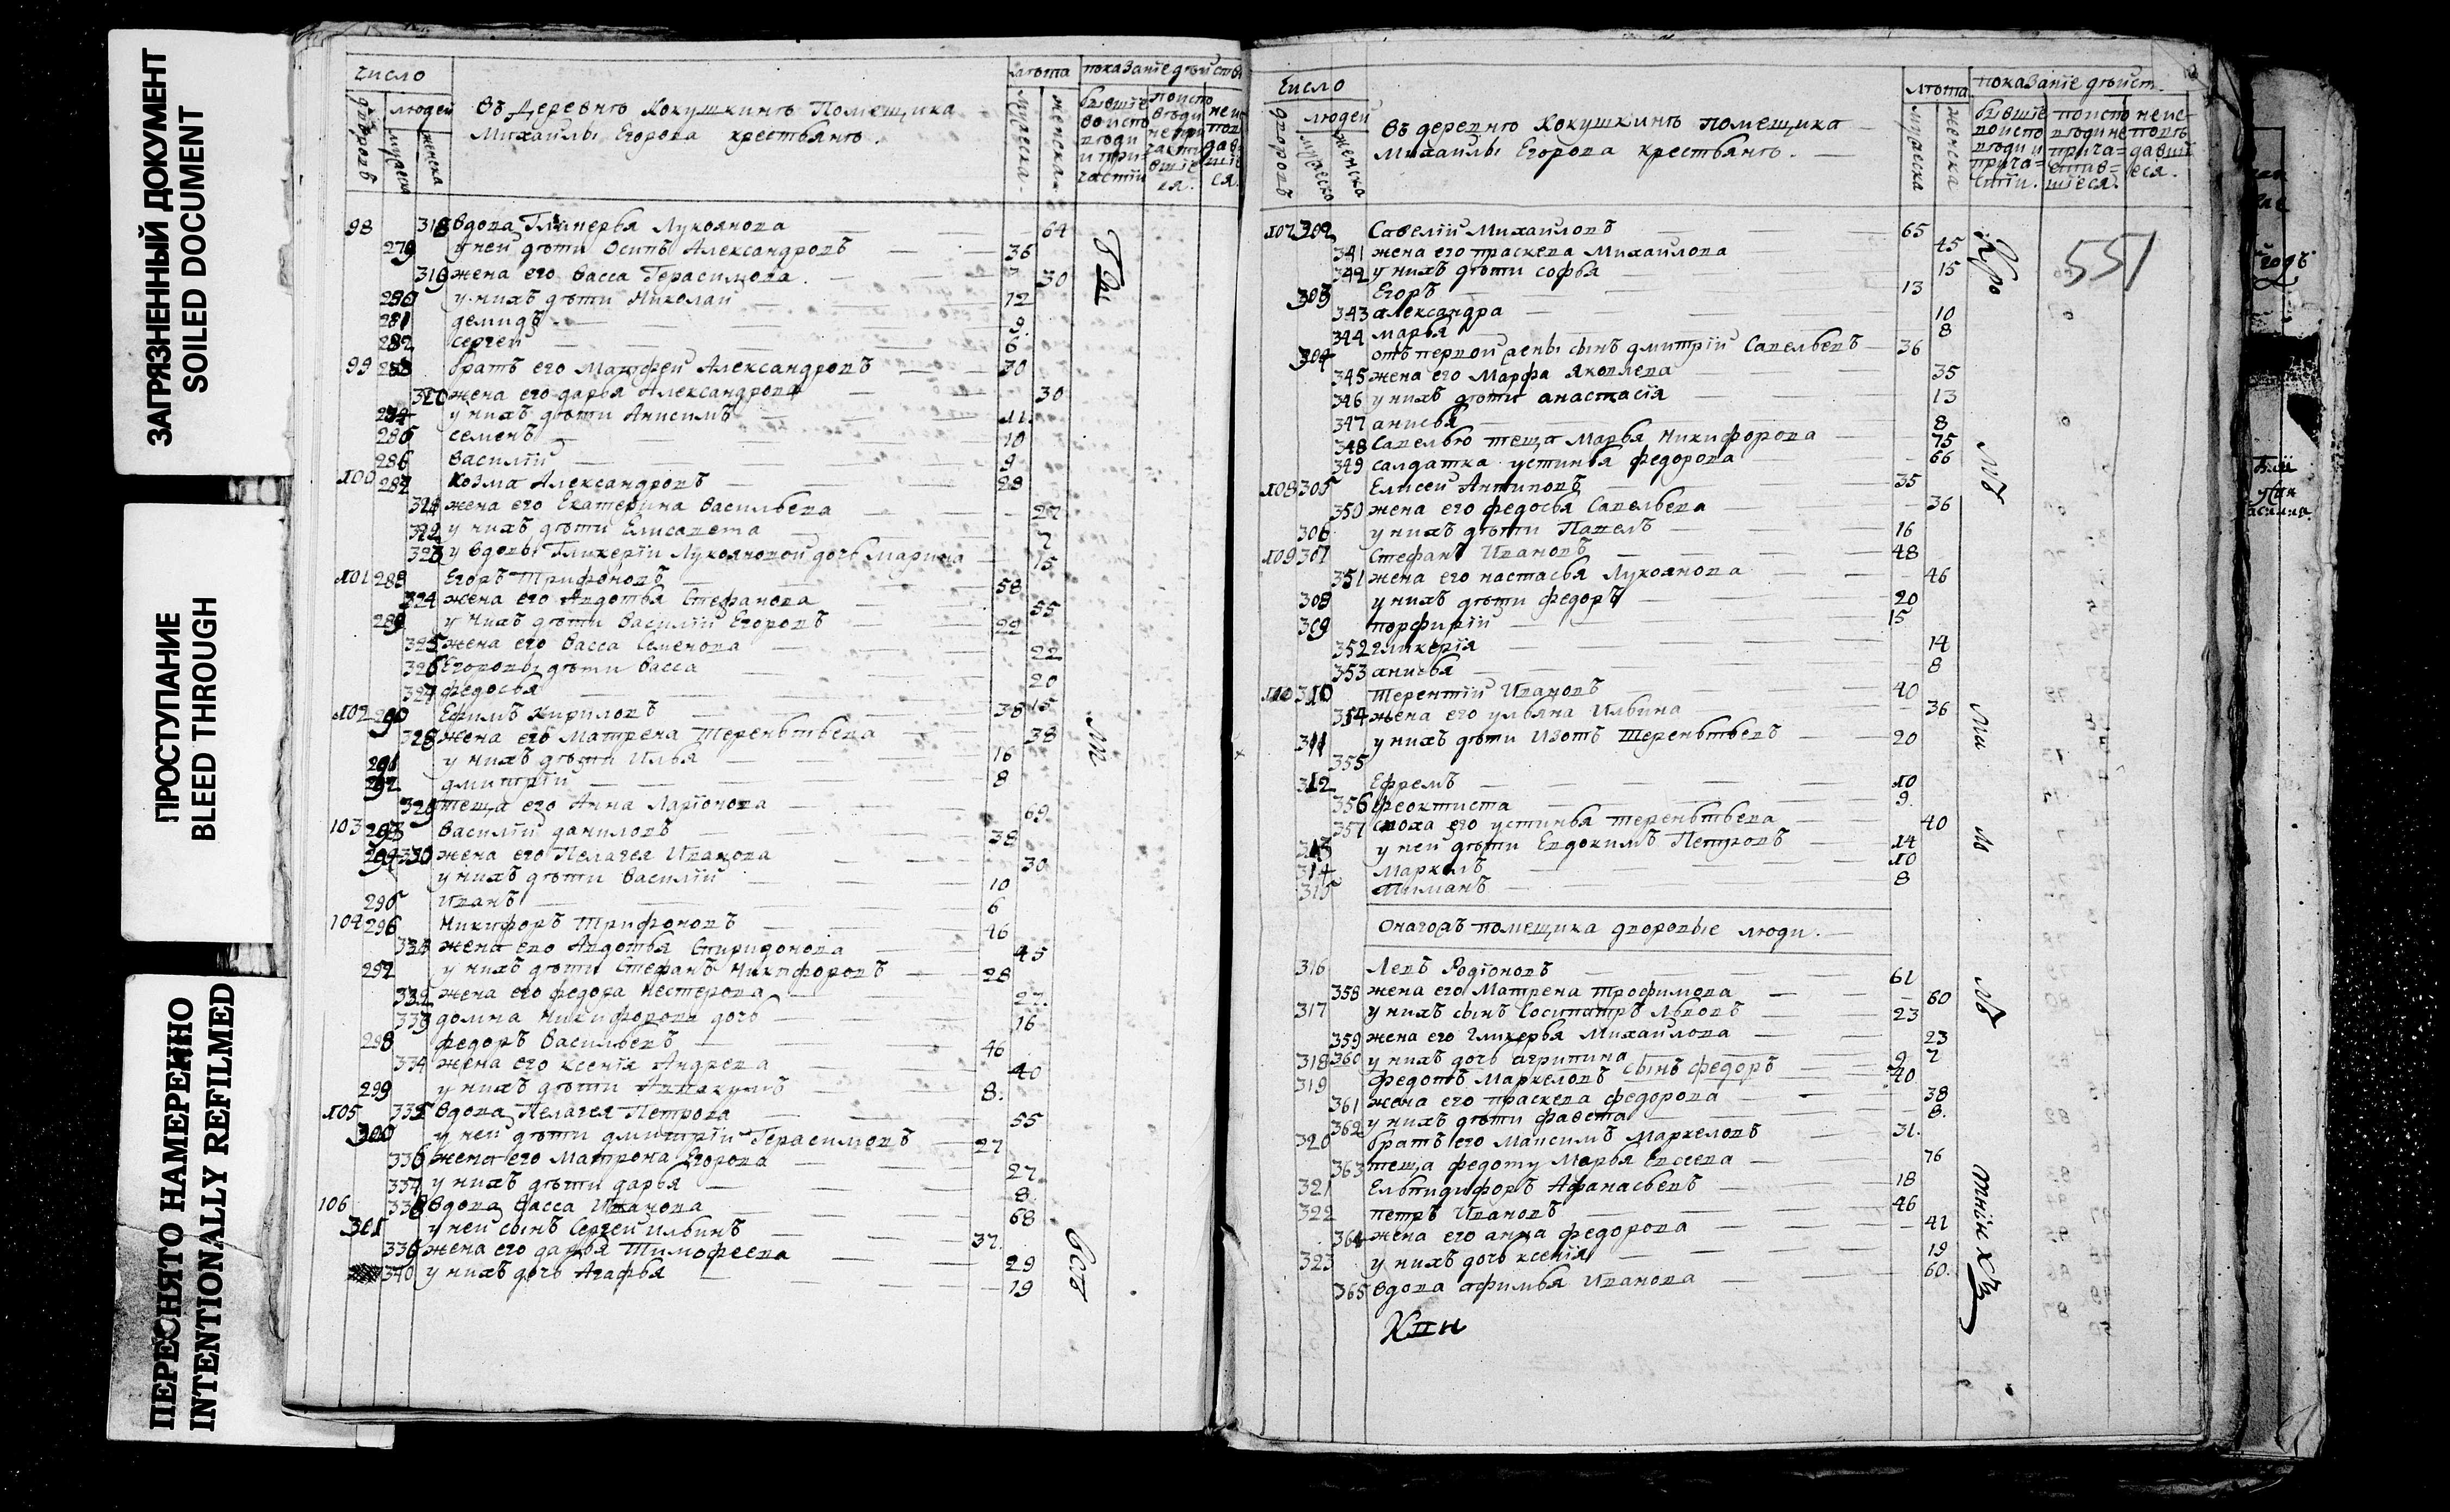 ЗАГРЯЗНЕННЫЙ ДОКУМЕНТ
SOILED DOCUMENT
ПРОСТУПАНИЕ
BLEED THROUGH
ПЕРЕСНЯТО НАМЕРЕННО
INTENTIONALLY REFILMED
число
людей
дворовъ
мужеска
женска
Въ Деревнѣ Кокушкинѣ Помещика
Михаилы Егорова крестьянъ.
лѣта
мужеска
женска
показанїе дѣиств
98 318 вдова Гликерья Лукоянова 64
279 у неи дѣти Осипъ Александровъ 36
319 жена его Васса Герасимова 30
280 у нихъ дѣти Николаи 12
281 демидъ 9
282 сергеи 6
99 283 братъ его Матфеи Александровъ 30
320 жена его дарья Александрова 30
284 у нихъ дѣти Анисимъ 11
285 семенъ 10
286 Василїи 9
100 287 Козма Александровъ 28
321 жена его Екатерина Васильева 27
322 у нихъ дѣти Елисавета 7
323 у вдовы Гликерїи Лукояновои дочь Марина 15
101 288 Егоръ Трифоновъ 58
324 жена его Авдотья Стефанова 55
289 у нихъ дѣти Василїи Егоровъ 22
325 жена его Васса Семенова 22
326 Егоровы дѣти Васса 20
327 федосья 15
102 290 Ефимъ Кириловъ 38
328 жена его Матрена Терентьева 38
291 у нихъ дѣти Илья 16
292 дмитрїи 8
329 теща его Анна Ларїонова 69
103 293 Василїи даниловъ 38
294 330 жена его Пелагея Иванова 30
у нихъ дѣти Василїи 10
295 Иванъ 6
104 296 Никифоръ Трифоновъ 46
331 жена его Авдотья Спиридонова 45
297 у нихъ дѣти Стефанъ Никифоровъ 28
332 жена его федора Нестерова 27
333 домна Никифорова дочь 16
298 федоръ Васильевъ 46
334 жена его Ксенїя Андреева 40
299 у нихъ дѣти Аввакумъ 8
105 335 Вдова Пелагея Петрова 55
300 у неи дѣти дмитрїи Герасимовъ 27
336 жена его Матрона Егорова 27
337 у нихъ дѣти дарья 8
106 338 Вдова Васса Иванова 68
301 у неи сынъ Сергеи Ильинъ 37
339 жена его дарья Тимофеева 29
340 у нихъ дочь Агафья 19
число
людей
дворовъ
мужеско
женска
Въ деревнѣ Кокушкинѣ помещика
Михаилы Егорова крестьянъ.
лѣта
мужеска
женска
показанїе дѣист.
551
107 302 Савелїи Михаиловъ 65
341 жена его праскева Михаилова 45
342 у нихъ дѣти софья 15
303 Егоръ 13
343 александра 10
344 марья 8
304 отъ первои жены сынъ дмитрїи Савельевъ 36
345 жена его Марфа Яковлева 35
346 у нихъ дѣти анастасїя 13
347 анисья 8
348 Савелью теща Марья Никифорова 75
349 салдатка устинья федорова 66
108 305 Елисеи Антиповъ 35
350 жена его федосья Савельева 36
306 у нихъ дѣти Павелъ 16
109 307 Стефанъ Ивановъ 48
351 жена его настасья Лукоянова 46
308 у нихъ дѣти федоръ 20
309 порфирїи 15
352 гликерїя 14
353 анисья 8
110 310 Терентїи Ивановъ 40
354 жена его ульяна Ильина 36
311 у нихъ дѣти Изотъ Терентьевъ 20
355
312 Ефремъ 10
356 феоктиста 9
357 сноха его устинья терентьева 40
313 у неи дѣти Евдокимъ Петровъ 14
314 Маркелъ 10
315 8
Онагожъ помещика дворовые люди.
316 Левъ Родїоновъ 61
358 жена его Матрена трофимова 60
317 у нихъ сынъ Сосипатръ Львовъ 23
359 жена его Гликерья Михаилова 23
318 360 у нихъ дочь агрипина сынъ федоръ 9 7
319 Федотъ Маркеловъ 40
361 жена его праскева федорова 38
362 у нихъ дѣти 8
320 братъ его Максимъ Маркеловъ 31
363 теща федоту Марья Евсеева 76
321 Ельпидифоръ Афанасьевъ 18
322 петръ Ивановъ 46
364 жена его анна федорова 41
323 у нихъ дочь ксенїя 19
365 Вдова афимья Иванова 60